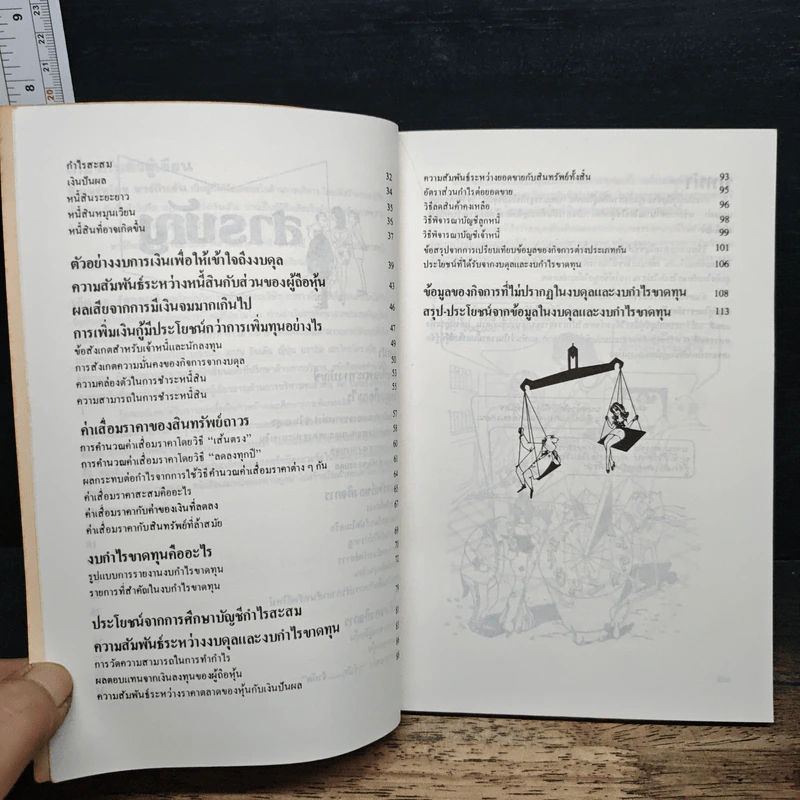 กำไรสะสม 32
เงินปันผล 34
หนี้สินระยะยาว 35
หนี้สินหมุนเวียน 36
หนี้สินที่อาจเกิดขึ้น 37
ตัวอย่างงบการเงินเพื่อให้เข้าใจถึงงบดุล 39
ความสัมพันธ์ระหว่างหนี้สินกับส่วนของผู้ถือหุ้น 43
ผลเสียจากการมีเงินจมมากเกินไป 46
การเพิ่มเงินกู้มีประโยชน์กว่าการเพิ่มทุนอย่างไร 47
ข้อสังเกตสำหรับเจ้าหนี้และนักลงทุน 49
การสังเกตความมั่นคงของกิจการจากงบดุล 50
ความคล่องตัวในการชำระหนี้สิน 53
ความสามารถในการชำระหนี้สิน 55
ค่าเสื่อมราคาของสินทรัพย์ถาวร 57
การคำนวณค่าเสื่อมราคาโดยวิธี "เส้นตรง" 58
การคำนวณค่าเสื่อมราคาโดยวิธี "ลดลงทุกปี" 60
ผลกระทบต่อกำไรจากการใช้วิธีคำนวณค่าเสื่อมราคาต่าง ๆ กัน 61
ค่าเสื่อมราคาสะสมคืออะไร 64
ค่าเสื่อมราคากับค่าของเงินที่ลดลง
ค่าเสื่อมราคากับสินทรัพย์ที่ล้าสมัย
งบกำไรขาดทุนคืออะไร
รูปแบบการรายงานงบกำไรขาดทุน
รายการที่สำคัญในงบกำไรขาดทุน
ประโยชน์จากการศึกษาบัญชีกำไรสะสม
ความสัมพันธ์ระหว่างงบดุลและงบกำไรขาดทุน
การวัดความสามารถในการทำกำไร
ผลตอบแทนจากเงินลงทุนของผู้ถือหุ้น
ความสัมพันธ์ระหว่างราคาตลาดของหุ้นกับเงินปันผล
ความสัมพันธ์ระหว่างยอดขายกับสินทรัพย์ทั้งสิ้น 93
อัตราส่วนกำไรต่อยอดขาย 95
วิธีลดสินค้าคงเหลือ 96
วิธีพิจารณาบัญชีลูกหนี้ 98
วิธีพิจารณาบัญชีเจ้าหนี้ 99
ข้อสรุปจากการเปรียบเทียบข้อมูลของกิจการต่างประเภทกัน 101
ประโยชน์ที่ได้รับจากงบดุลและงบกำไรขาดทุน 106
ข้อมูลของกิจการที่ไม่ปรากฏในงบดุลและงบกำไรขาดทุน 108
สรุป-ประโยชน์จากข้อมูลในงบดุลและงบกำไรขาดทุน 113